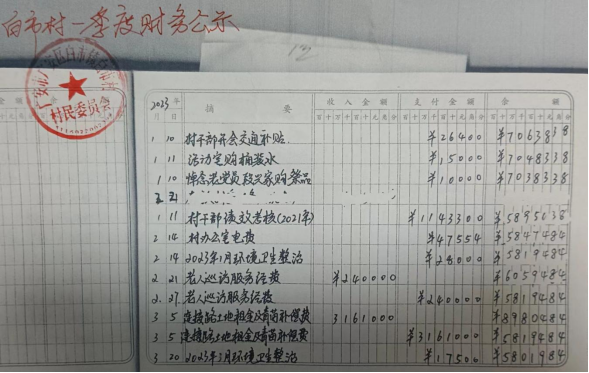 白市村一季度财务公示
村民委员会
2023年 摘 要 收入金额 支付金额 余 额
月 日 百十万千百十元角分 百十万千百十元角分 百十万千百十元角分
1 10 村干部开会交通补贴 ¥26400 ¥7063838
1 11 活动室购桶装水 ¥15000 ¥7048338
1 10 悼念老党员 购祭品 ¥10000 ¥7038338
1 11 村干部绩效考核(2021年) ¥1143300 ¥5895038
2 14 村办公室电费 ¥47554 ¥5847484
2 14 2023年1月环境卫生整治 ¥28000 ¥5819484
2 21 老人巡访服务经费 ¥240000 ¥6059484
2 27 老人巡访服务经费 ¥240000 ¥5819484
3 5 连接路土地租金及青苗补偿费 3161000 ¥8980484
3 5 连接路土地租金及青苗补偿费 ¥3161000 ¥5819484
3 20 2023年3月环境卫生整治 ¥17500 ¥5801984